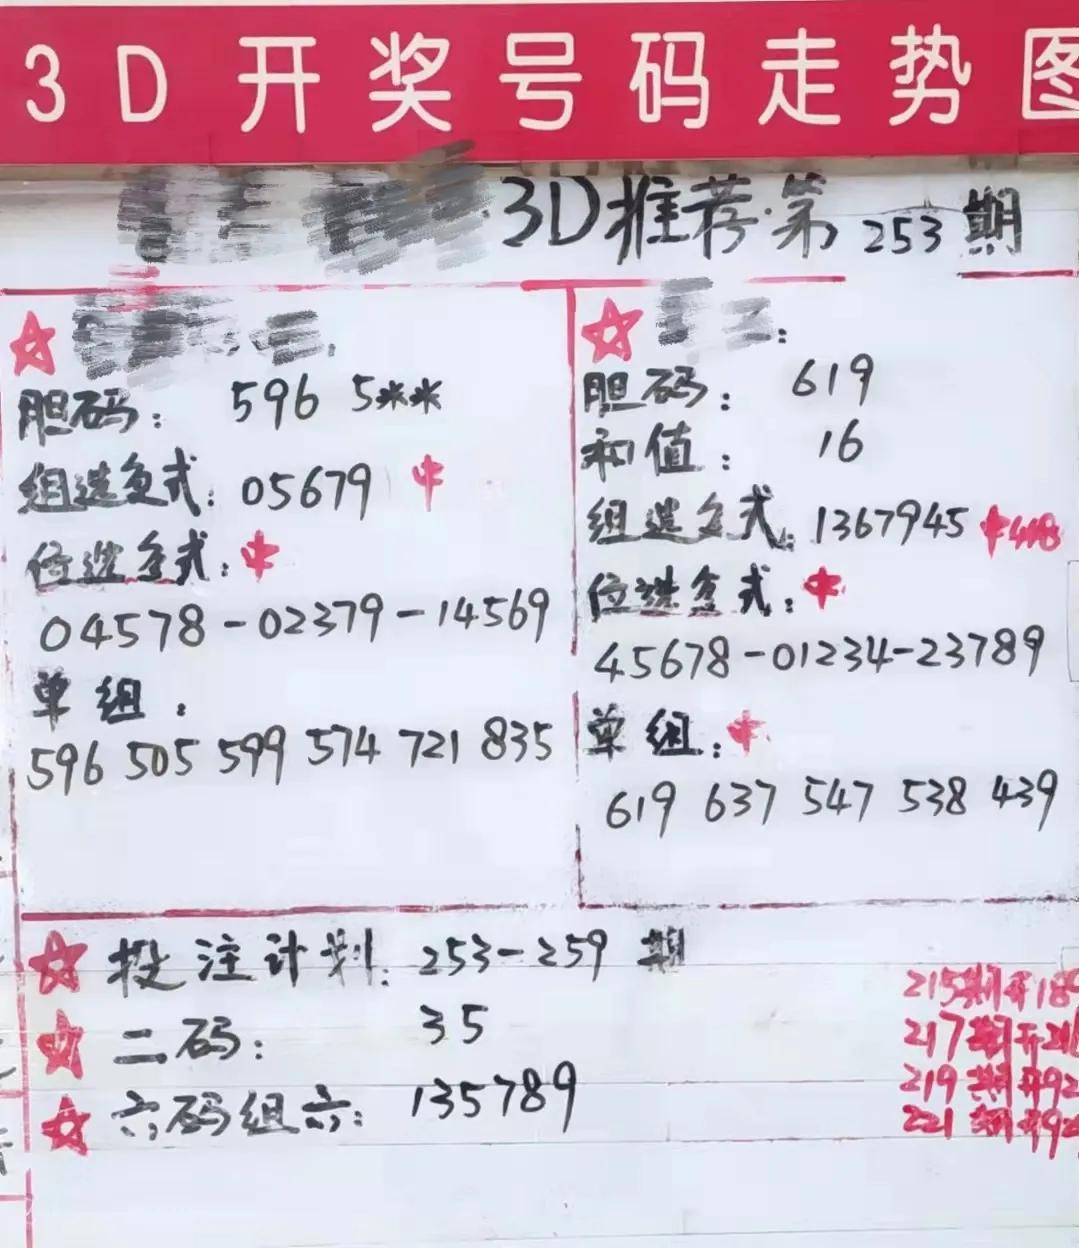 3D开奖号码走势图
3D推荐·第253期
胆码: 596 5**
组选复式: 05679 中
位选复式: 中
04578-02379-14569
单组:
596 505 599 574 721 835
胆码: 619
和值: 16
组选复式: 1367945 中
位选复式: 中
45678-01234-23789
单组: 中
619 637 547 538 439
投注计划: 253-259期
二码: 35
六码组六: 135789
215期开189
217期开
219期开92
221期开92